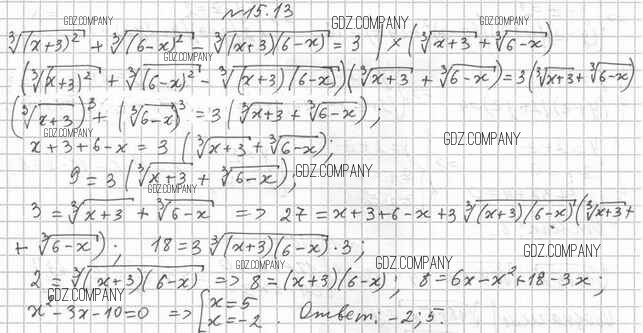 №15.13
∛(x+3)² + ∛(6-x)² - ∛(x+3)(6-x) = 3 | × (∛x+3 + ∛6-x)
(∛(x+3)² + ∛(6-x)² - ∛(x+3)(6-x))(∛x+3 + ∛6-x) = 3(∛x+3 + ∛6-x)
(∛x+3)³ + (∛6-x)³ = 3(∛x+3 + ∛6-x);
x+3+6-x = 3(∛x+3 + ∛6-x);
9 = 3(∛x+3 + ∛6-x);
3 = ∛x+3 + ∛6-x => 27 = x+3+6-x+3∛(x+3)(6-x)(∛x+3 +
+ ∛6-x); 18 = 3∛(x+3)(6-x)·3;
2 = ∛(x+3)(6-x) => 8 = (x+3)(6-x); 8 = 6x-x²+18-3x;
x²-3x-10=0 => [x=5
x=-2. Ответ: -2; 5.
GDZ.COMPANY
GDZ.COMPANY
GDZ.COMPANY
GDZ.COMPANY
GDZ.COMPANY
GDZ.COMPANY
GDZ.COMPANY
GDZ.COMPANY
GDZ.COMPANY
GDZ.COMPANY
GDZ.COMPANY
GDZ.COMPANY